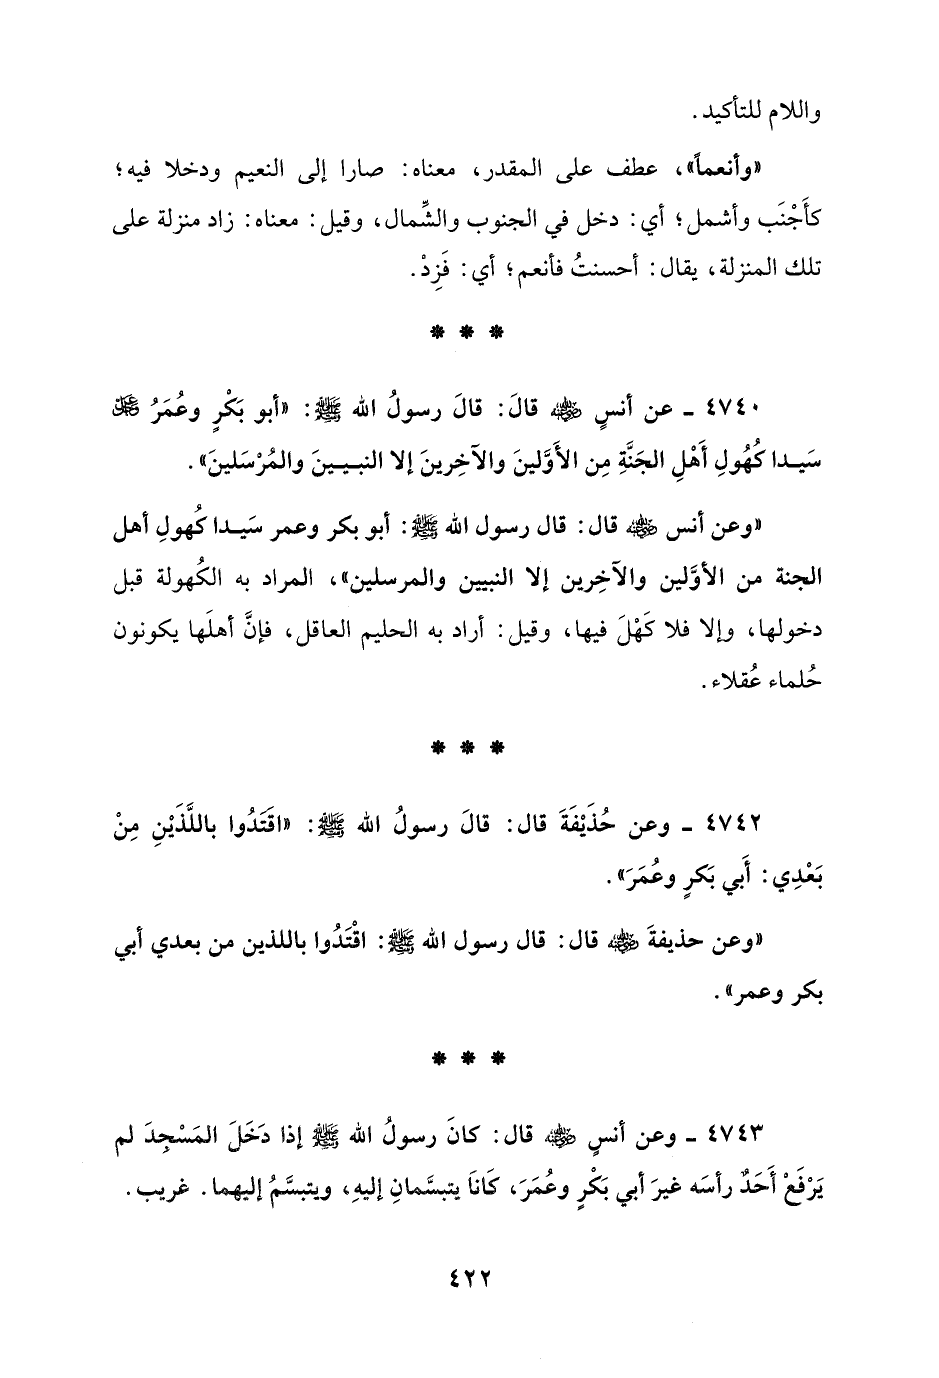 واللام للتأكيد.
«وأنعماً»، عطف على المقدر، معناه: صارا إلى النعيم ودخلا فيه؛
كأَجْنَب وأشمل؛ أي: دخل في الجنوب والشِّمال، وقيل: معناه: زاد منزلة على
تلك المنزلة، يقال: أحسنتُ فأنعم؛ أي: فَزِدْ.
* * *
٤٧٤٠ ـ عن أنسٍ ﵁ قالَ: قالَ رسولُ الله ﷺ: «أبو بَكْرٍ وعُمَرُ ﵄
سَيـدا كُهُولِ أَهْلِ الجَنَّةِ مِن الأَوَّلينَ والآخِرينَ إلا النبـيـينَ والمُرْسَلينَ».
«وعن أنس ﵁ قال: قال رسول الله ﷺ: أبو بكر وعمر سَيـدا كُهولِ أهل
الجنة من الأوَّلين والآخِرين إلا النبيين والمرسلين»، المراد به الكُهولة قبل
دخولها، وإلا فلا كَهْلَ فيها، وقيل: أراد به الحليم العاقل، فإنَّ أهلَها يكونون
حُلماء عُقلاء.
* * *
٤٧٤٢ ـ وعن حُذَيْفَةَ قال: قالَ رسولُ الله ﷺ: «اقتَدُوا باللَّذَيْنِ مِنْ
بَعْدِي: أَبي بَكرٍ وعُمَرَ».
«وعن حذيفةَ ﵁ قال: قال رسول الله ﷺ: اقْتَدُوا باللذين من بعدي أبي
بكر وعمر».
* * *
٤٧٤٣ ـ وعن أنسٍ ﵁ قال: كانَ رسولُ الله ﷺ إذا دَخَلَ المَسْجِدَ لم
يَرْفَعْ أَحَدٌ رأسَه غيرَ أبي بَكْرٍ وعُمَرَ، كَاناَ يتبسَّمانِ إليهِ، ويتبسَّمُ إليهما. غريب.
٤٢٢